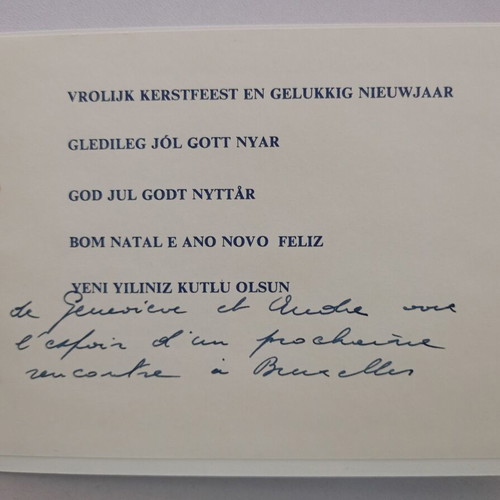 VROLIJK KERSTFEEST EN GELUKKIG NIEUWJAAR
GLEDILEG JÓL GOTT NYAR
GOD JUL GODT NYTTÅR
BOM NATAL E ANO NOVO FELIZ
YENI YILINIZ KUTLU OLSUN
de Geneviève et André avec
l'espoir d'un prochaine
rencontre à Bruxelles